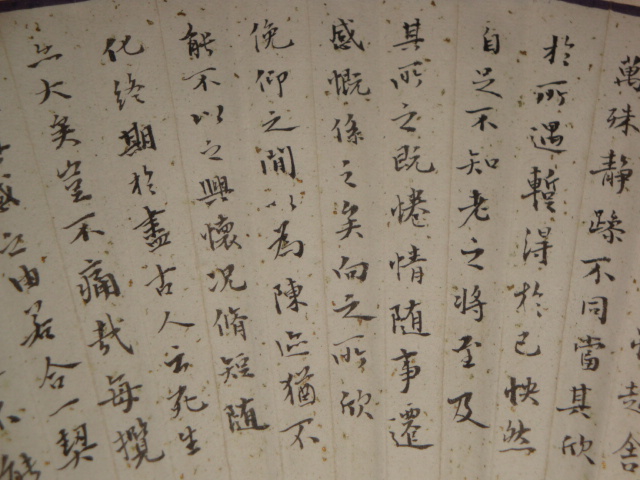 趣舍
萬殊靜躁不同當其欣
於所遇蹔得於己快然
自足不知老之將至及
其所之既惓情随事遷
感慨係之矣向之所欣
俛仰之間以為陳迹猶不
能不以之興懷况脩短随
化終期於盡古人云死生
亦大矣豈不痛哉每攬
感之由若合一契